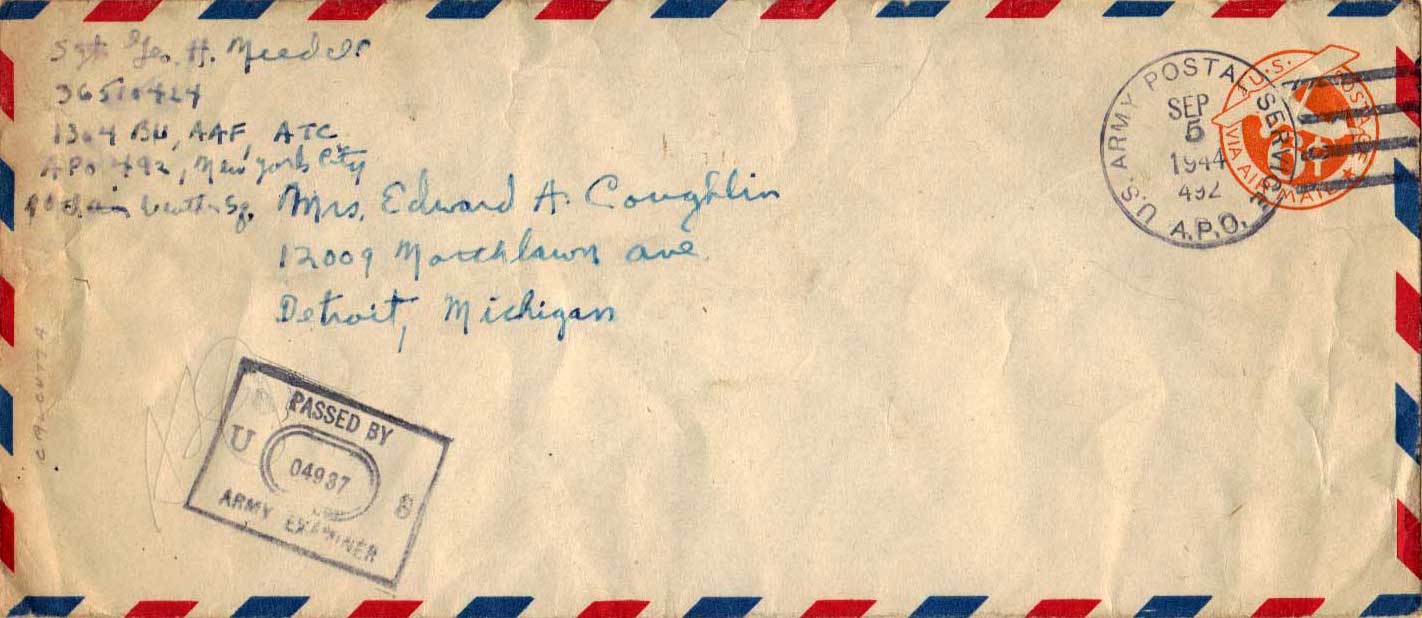 Sgt Geo. H.
36510424
1304 BU, AAF, ATC
APO 492, New York City
10th Weather Sq.
Mrs. Edward A. Coughlin
12009 Northlawn ave
Detroit, Michigan
U.S. ARMY POSTAL SERVICE
SEP
5
1944
492
A.P.O.
U.S. POSTAGE
VIA AIR MAIL
CALCUTTA
PASSED BY
U S
04937
ARMY EXAMINER